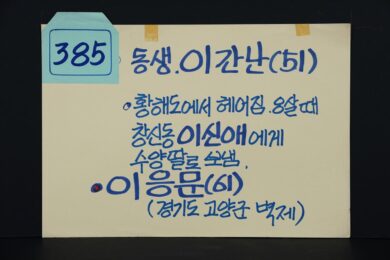 385
동생.이간난(51)
•황해도에서 헤어짐.8살때
창신동 이신애에게
수양딸로 보냄.
•이응문(61)
(경기도 고양군 벽제)